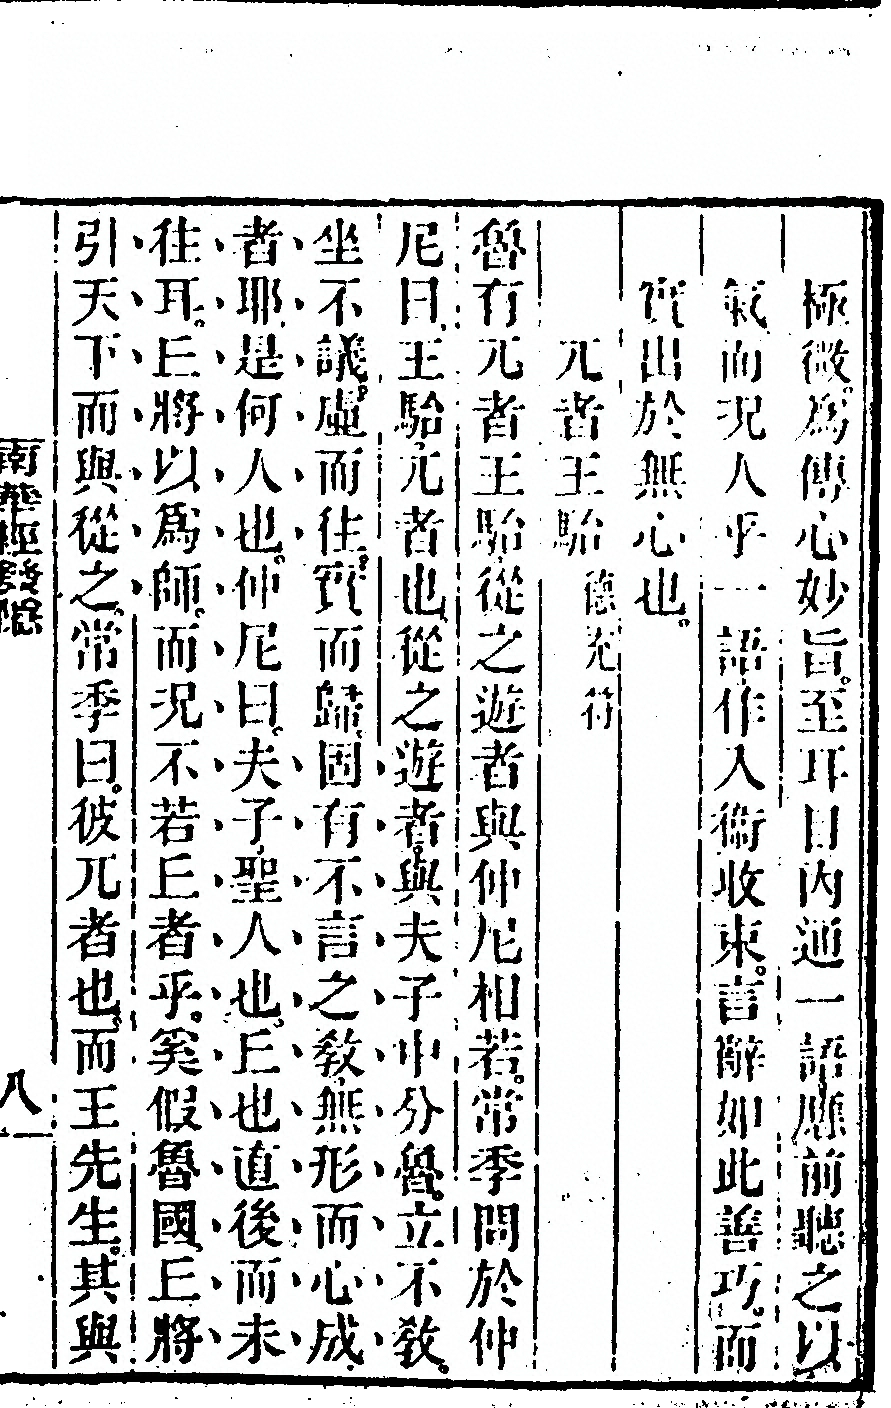 極微爲傳心妙旨至耳目內通一語應前聽之以
氣而況人乎一語作入衛收束言辭如此善巧而
實出於無心也
兀者王駘 德充符
魯有兀者王駘從之遊者與仲尼相若常季問於仲
尼曰王駘兀者也從之遊者與夫子中分魯立不敎
坐不議虛而往實而歸固有不言之敎無形而心成
者耶是何人也仲尼曰夫子聖人也丘也直後而未
往耳丘將以爲師而況不若丘者乎奚假魯國丘將
引天下而與從之常季曰彼兀者也而王先生其與
南華經發隱
八